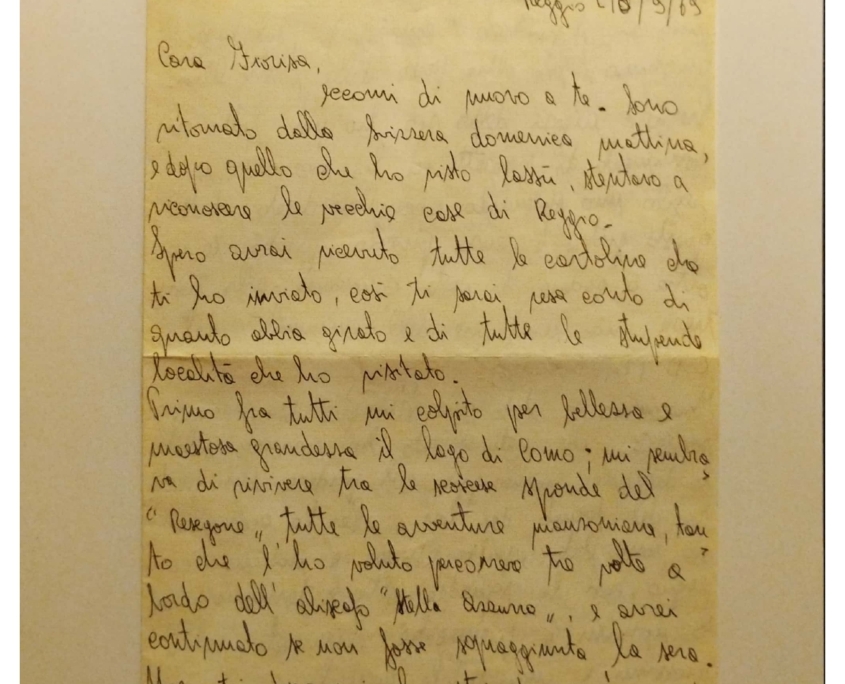 Reggio /9/69
Cara Fiorisa,
eccomi di nuovo a te. Sono
ritornato dalla Svizzera domenica mattina,
e dopo quello che ho visto lassù, stentavo a
riconoscere le vecchie case di Reggio.
Spero avrai ricevuto tutte le cartoline che
ti ho inviato, così ti sarai resa conto di
quanto abbia girato e di tutte le stupende
località che ho visitato.
Primo fra tutti mi colpito per bellezza e
maestosa grandezza il lago di Como; mi sembra
va di rivivere tra le scoscese sponde del
"Resegone" tutte le avventure manzoniane, tan
to che l'ho voluto percorrere tre volte a
bordo dell'aliscafo "Stella Azzurra", e avrei
continuato se non fosse sopraggiunta la sera.